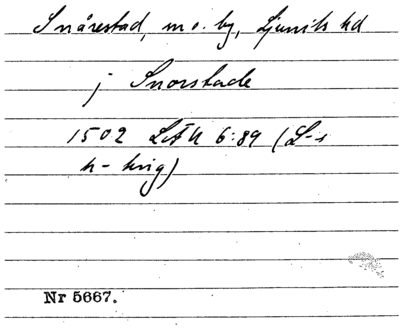 Snårestad, sn o. by, Ljunits hd
j Snorstade
1502 LÄU 6:89 (L-s
h-krig)
Nr 5667.